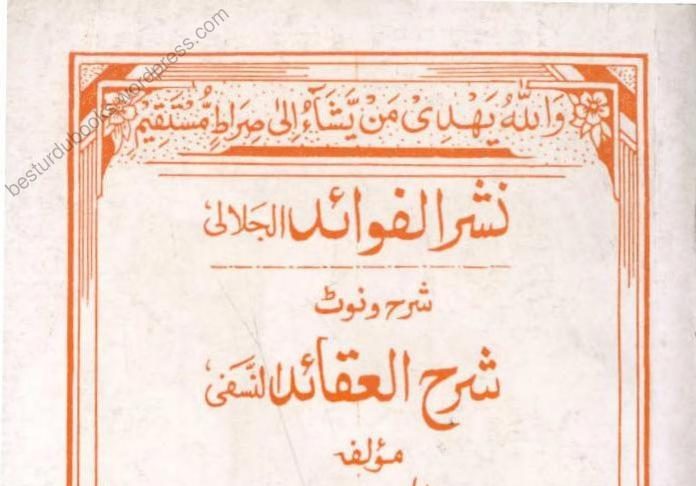 besturdubooks.wordpress.com
وَاللّٰهُ يَهْدِىْ مَنْ يَّشَآءُ اِلٰى صِرَاطٍ مُّسْتَقِيْمٍ
نشر الفوائد الجلالی
شرح و نوٹ
شرح العقائد النسفی
مؤلفہ